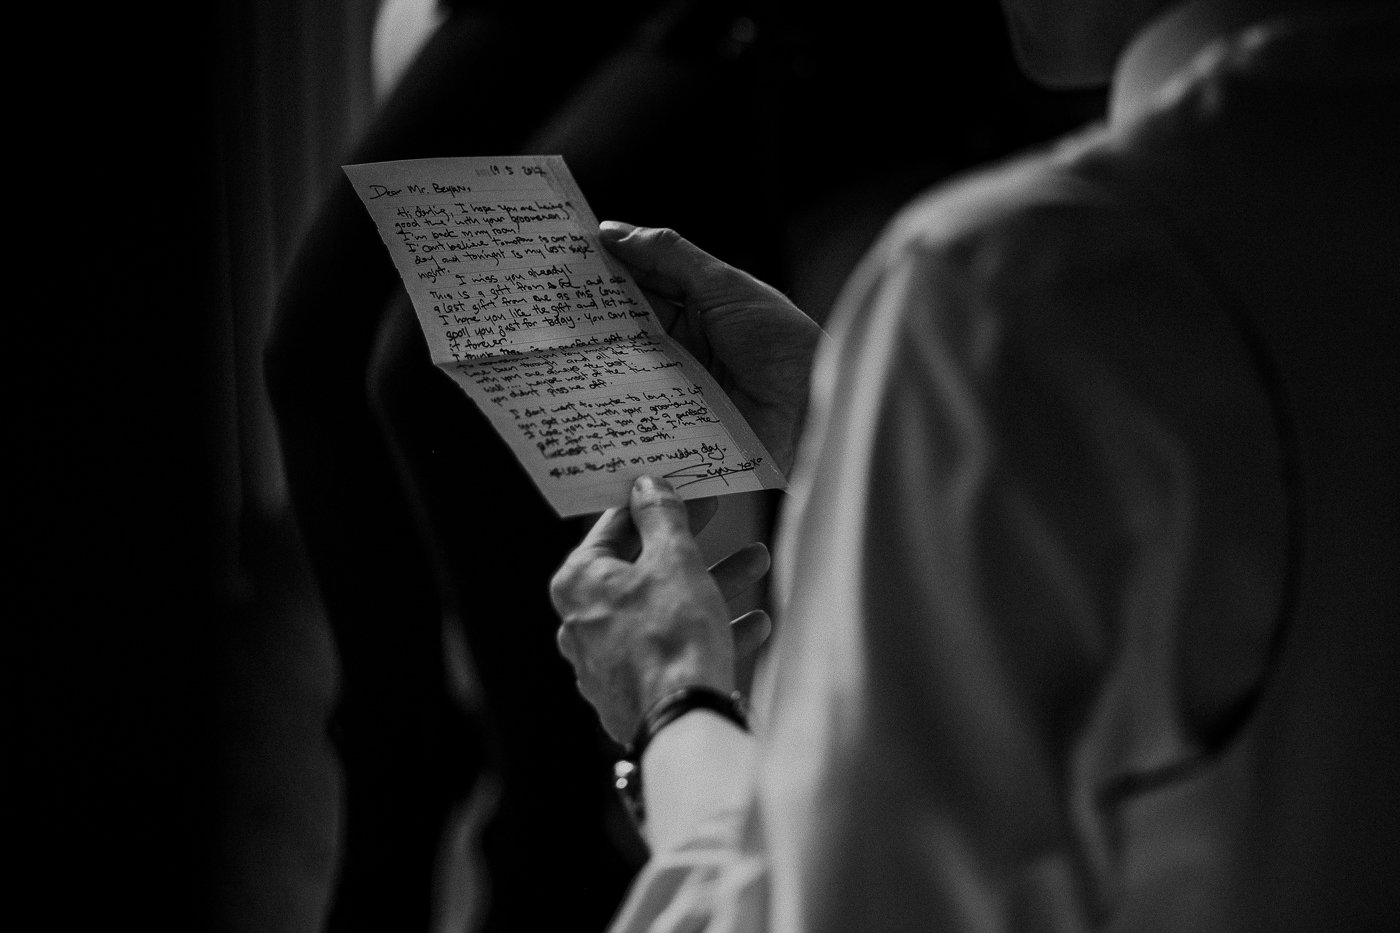 19 5 2012
Dear Mr. Bryan,
Hi darlig, I hope you are having a
good time with your groomsmen,
I'm back in my room!
I can't believe tomorrow is our big
day and tonight is my last single
night.
I miss you already!
This is a gift from a and also
a last gift from me as Ms Low.
I hope you like the gift and let me
spoil you just for today. You can keep
it forever.
I think is a perfect gift
been through and all the time
with you are always the best.
Well... maybe most of the time when
you didn't piss me off.
I dont want to write to long, I let
you get ready with your groomsmen,
I love you and you are a perfect
gift for me from God. I'm the
luckiest girl on earth.
the gift on our wedding day.
xoxo